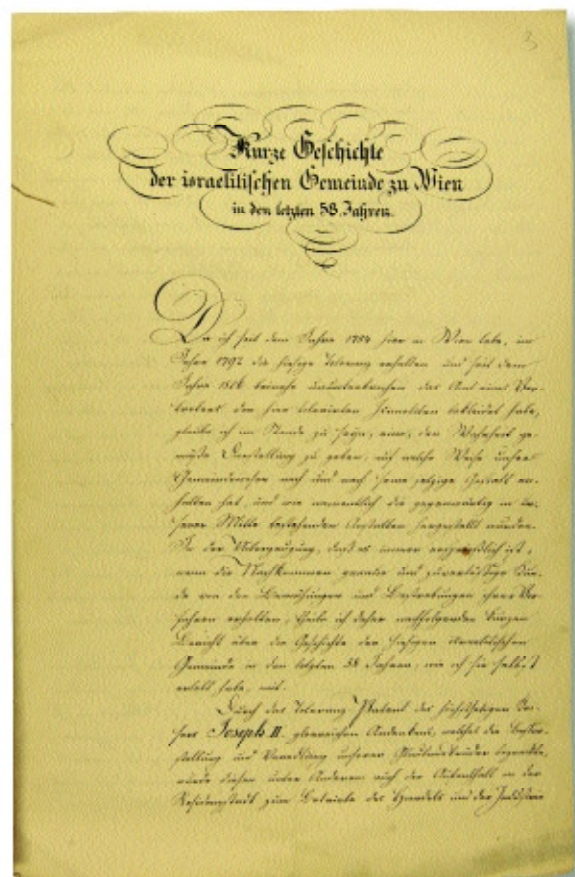 3
Kurze Geschichte
der israelitischen Gemeinde zu Wien
in den letzten 58 Jahren.
Da ich seit dem Jahre 1784 hier in Wien lebe, im
Jahre 1792 die hiesige Toleranz erhalten und seit dem
Jahre 1806 beinahe ununterbrochen das Amt eines Ver-
treters der hier tolerirten Israeliten bekleidet habe,
glaube ich im Stande zu seyn, eine, der Wahrheit ge-
mäße Darstellung zu geben, auf welche Weise unser
Gemeindewesen nach und nach seine jetzige Gestalt er-
halten hat, und wie namentlich die gegenwärtig in un-
serer Mitte bestehenden Anstalten hergestellt wurden.
In der Ueberzeugung, daß es immer ist,
wenn die Nachkommen genaue und zuverlässige Kun-
de von den Bemühungen und Bestrebungen ihrer Vor-
fahren erhalten, theile ich daher nachfolgenden kurzen
Bericht über die Geschichte der hiesigen israelitischen
Gemeinde in den letzten 58 Jahren, wie ich sie selbst
erlebt habe, mit.
Durch das Toleranz-Patent des höchstseligen Kai-
sers Joseph II. glorreichen Andenkens, welches die Besser-
stellung und Veredlung unserer Glaubensbrüder bezweckte,
wurde diesen unter Anderem auch der Aufenthalt in der
Residenzstadt zum Betriebe des Handels und der Industrie